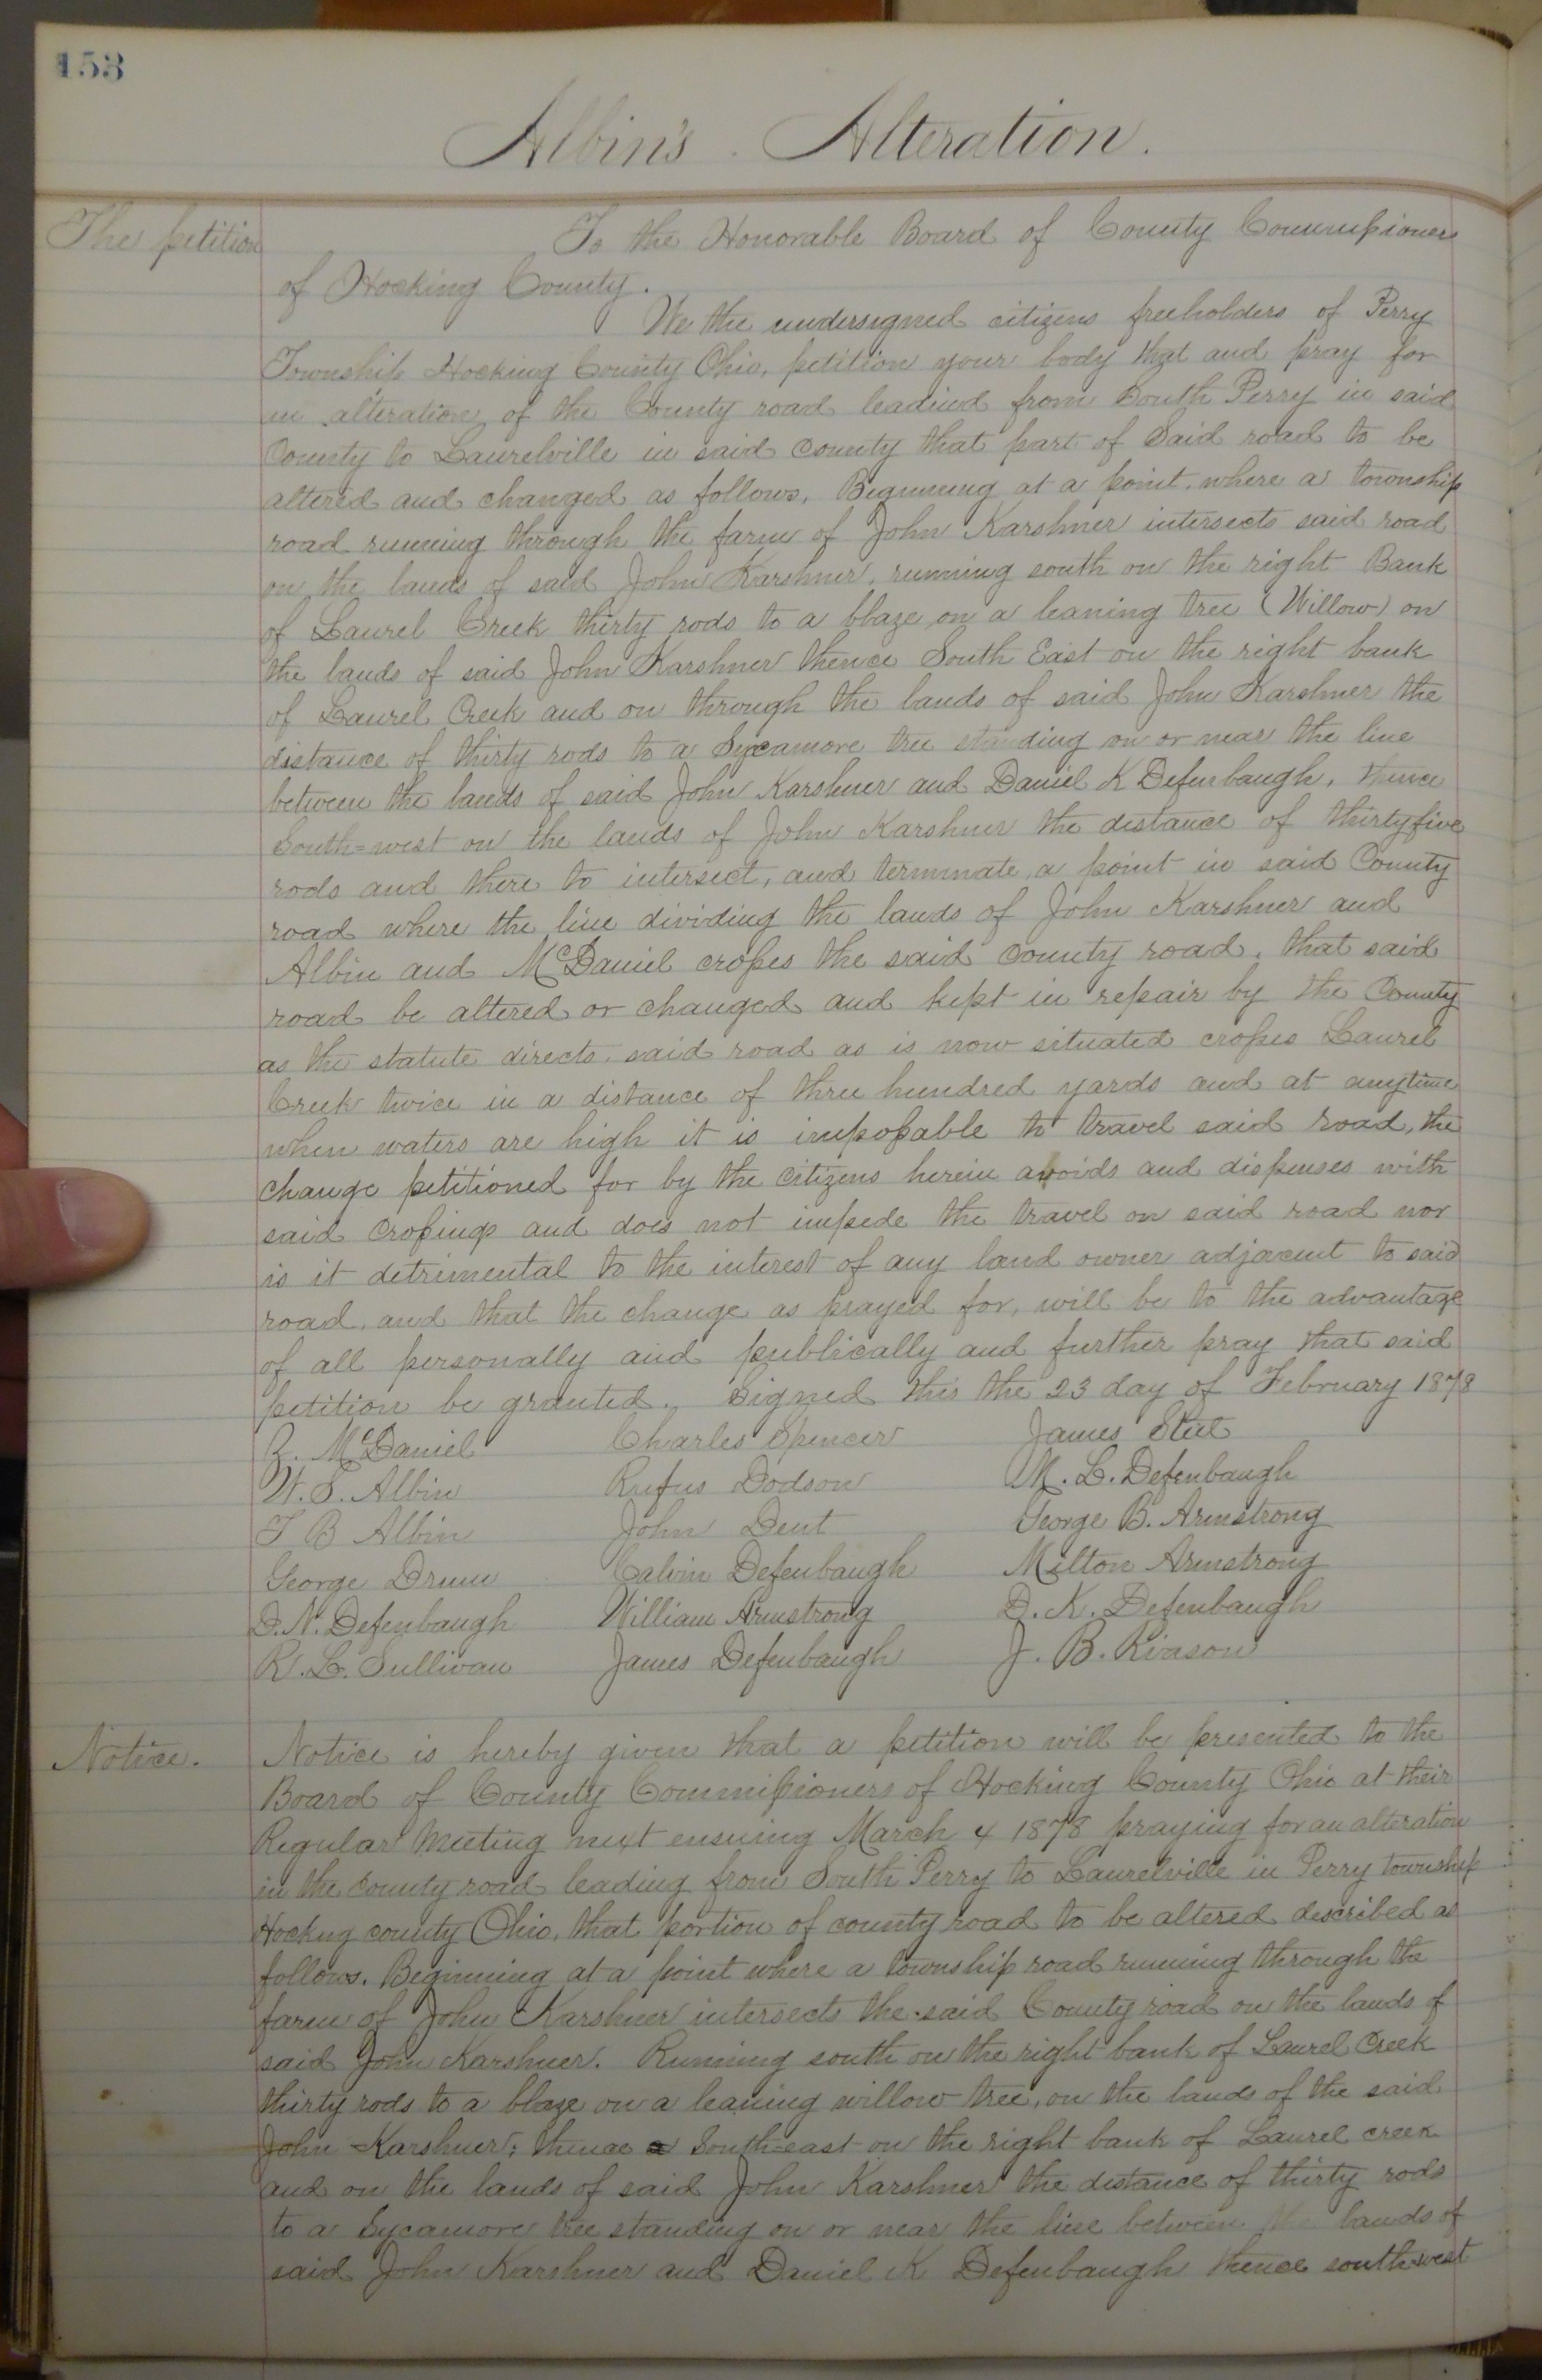 153
Albin's Alteration.
The petition
To the Honorable Board of County Commissioners
of Hocking County.
We the undersigned citizens freeholders of Perry
Township Hocking County Ohio, petition your body that and pray for
an alteration of the County road leadind from South Perry in said
County to Laurelville in said County that part of Said road to be
altered and changed as follows, Beginning at a point where a township
road running through the farm of John Karshner intersects said road
on the lands of said John Karshner, running south on the right Bank
of Laurel Creek thirty rods to a blaze on a leaning tree (Willow) on
the lands of said John Karshner thence South East on the right bank
of Laurel Creek and on through the lands of said John Karshner the
distance of thirty rods to a Sycamore tree standing on or near the line
between the lands of said John Karshner and Daniel K Defenbaugh, thence
South=west on the lands of John Karshner the distance of thirtyfive
rods and there to intersect, and terminate, a point in said County
road where the line dividing the lands of John Karshner and
Albin and McDaniel crosses the said county road, that said
road be altered or changed and kept in repair by the County
as the statute directs, said road as is now situated crosses Laurel
Creek twice in a distance of three hundred yards and at anytime
when waters are high it is impossable to travel said road, the
change petitioned for by the citizens herein avoids and dispenses with
said crossings and does not impede the travel on said road nor
is it detrimental to the interest of any land owner adjacent to said
road, and that the change as prayed for, will be to the advantage
of all personally and publically and further pray that said
petition be granted. Signed this the 23 day of February 1878
Z. McDaniel Charles Spencer James
W. S. Albin Rufus Dodson M. L. Defenbaugh
T B Albin John Dent George B. Armstrong
George Drum Calvin Defenbaugh Milton Armstrong
D. N. Defenbaugh William Armstrong D. K. Defenbaugh
R. L. Sullivan James Defenbaugh J. B.
Notice.
Notice is hereby given that a petition will be presented to the
Board of County Commissioners of Hocking County Ohio at their
Regular Meeting next ensuing March 4 1878 praying for an alteration
in the County road leading from South Perry to Laurelville in Perry township
Hockng county Ohio, that portion of county road to be altered described as
follows. Beginning at a point where a township road running through the
farm of John Karshner intersects the said County road on the lands of
said John Karshner. Running south on the right bank of Laurel Creek
thirty rods to a blaze on a leaning willow tree, on the lands of the said
John Karshner; thence South=east on the right bank of Laurel creek
and on the lands of said John Karshner the distance of thirty rods
to a Sycamore tree standing on or near the line between the lands of
said John Karshner and Daniel K Defenbaugh thence south=west